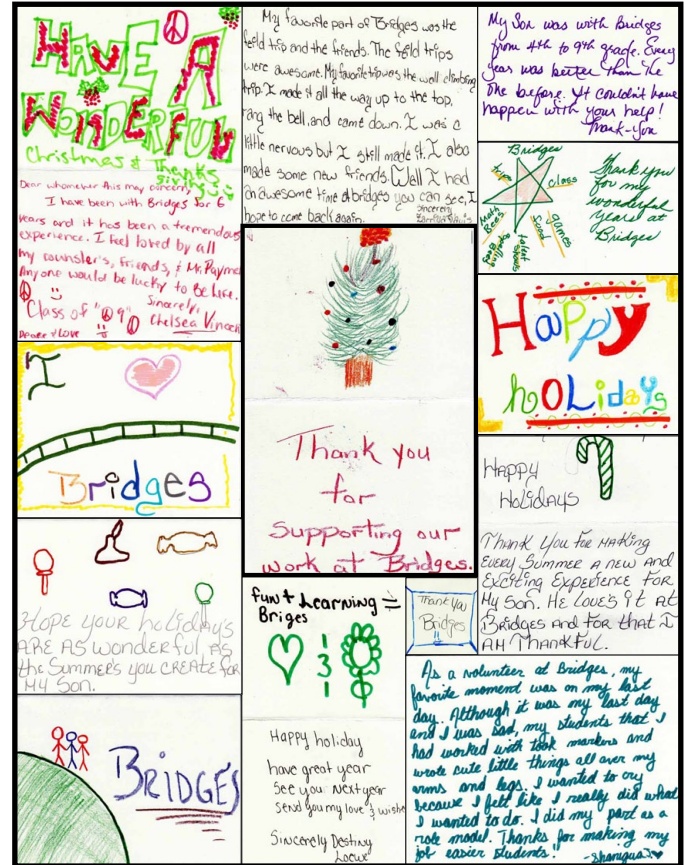 HAVE A
WONDERFUL
Christmas & Thanks
Dear whomever this may concern,
I have been with Bridges for 6
years and it has been a tremendous
experience. I feel loved by all
my counsler's, friends, & Mr. Payme
Anyone would be lucky to be here.
Sincerely,
Class of "09"
Chelsea Vincen
Peace & Love
I
Bridges
Hope your holidays
are as wonderful as
the summer's you create for
my son.
BRIDGES
My favorite part of Bridges was the
feild trip and the friends. The feild trips
were awesome. My favorite trip was the wall climbing
trip. I made it all the way up to the top,
rang the bell, and came down. I was a
little nervous but I still made it. I also
made some new friends. Well I had
an awesome time at bridges you can see, I
hope to come back again.
sincerely
Thank you
for
supporting our
work at Bridges.
fun + Learning =
Briges
1
3
1
Happy holiday
have great year
see you next year
send you my love & wishe
Sincerely Destiny
My Son was with Bridges
from 4th to 9th grade. Every
year was better than the
one before. It couldn't have
happen with your help!
Thank-you
Bridges
trips
class
Math Bees
Spelling Bees
talent shows
food
games
Thank you
for my
wonderful
years at
Bridges
Happy
hOLidays
Happy
Holidays
Thank You for making
every summer a new and
exciting experience for
my son. He loves it at
Bridges and for that I
am thankful.
Thank you
Bridges
!!
As a volunteer at Bridges, my
favorite moment was on my last
day. Although it was my last day
and I was sad, my students that I
had worked with took markers and
wrote cute little things all over my
arms and legs. I wanted to cry
because I felt like I really did what
I wanted to do. I did my part as a
role model. Thanks for making my
job easier students!
-Shaniqua J